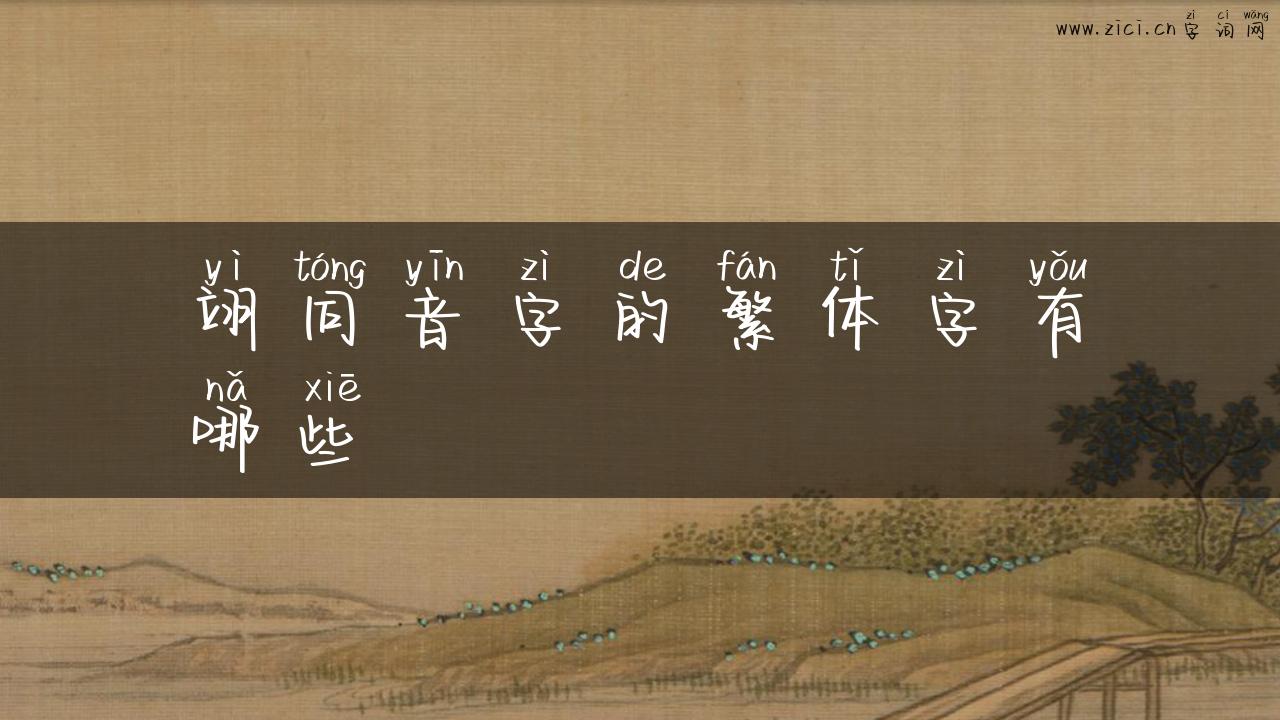 zì cí wǎng
www.zici.cn 字 词 网
yì tóng yīn zì de fán tǐ zì yǒu
翊 同 音 字 的 繁 体 字 有
nǎ xiē
哪 些